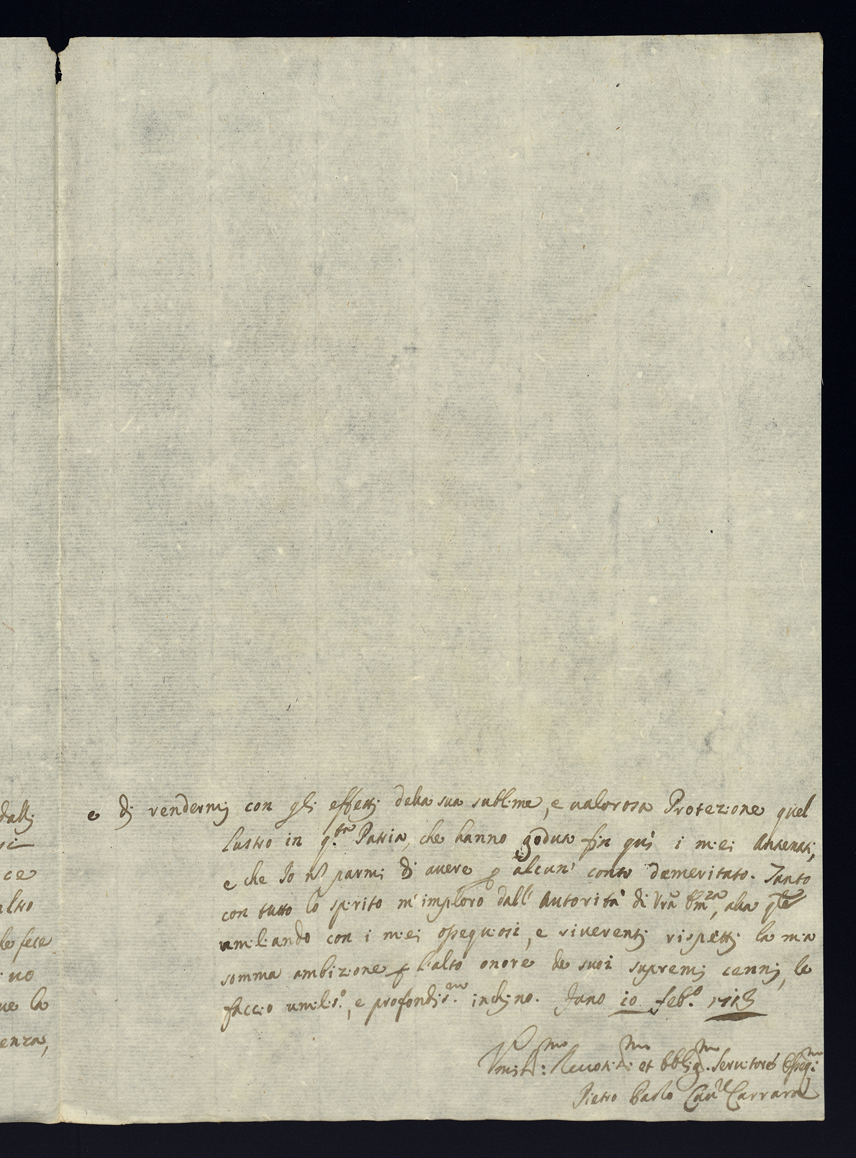 dalli
ce
altro
le fece
uo
ue la
enza,
e di rendermi con gli effetti della sua sublime, e valorosa Protezione quel
lustro in q.sta Patria, che hanno goduto fin quì i miei Antenati,
e che Io n parmi di avere p alcun' conto demeritato. Tanto
con tutto lo spirito m'imploro dall' Autorità di Vrã Em.za, alla qle
umiliando con i miei ossequiosi, e riverenti rispetti la mia
somma ambizione p l'alto onore de suoi supremi cenni, le
faccio umilis.o, e profondis.mo inchino. Fano 10 feb.o
Umil.mo Devotis.mo et Obblig.mo Servitore Osseq.mo
Pietro Paolo Cav.re Carrara